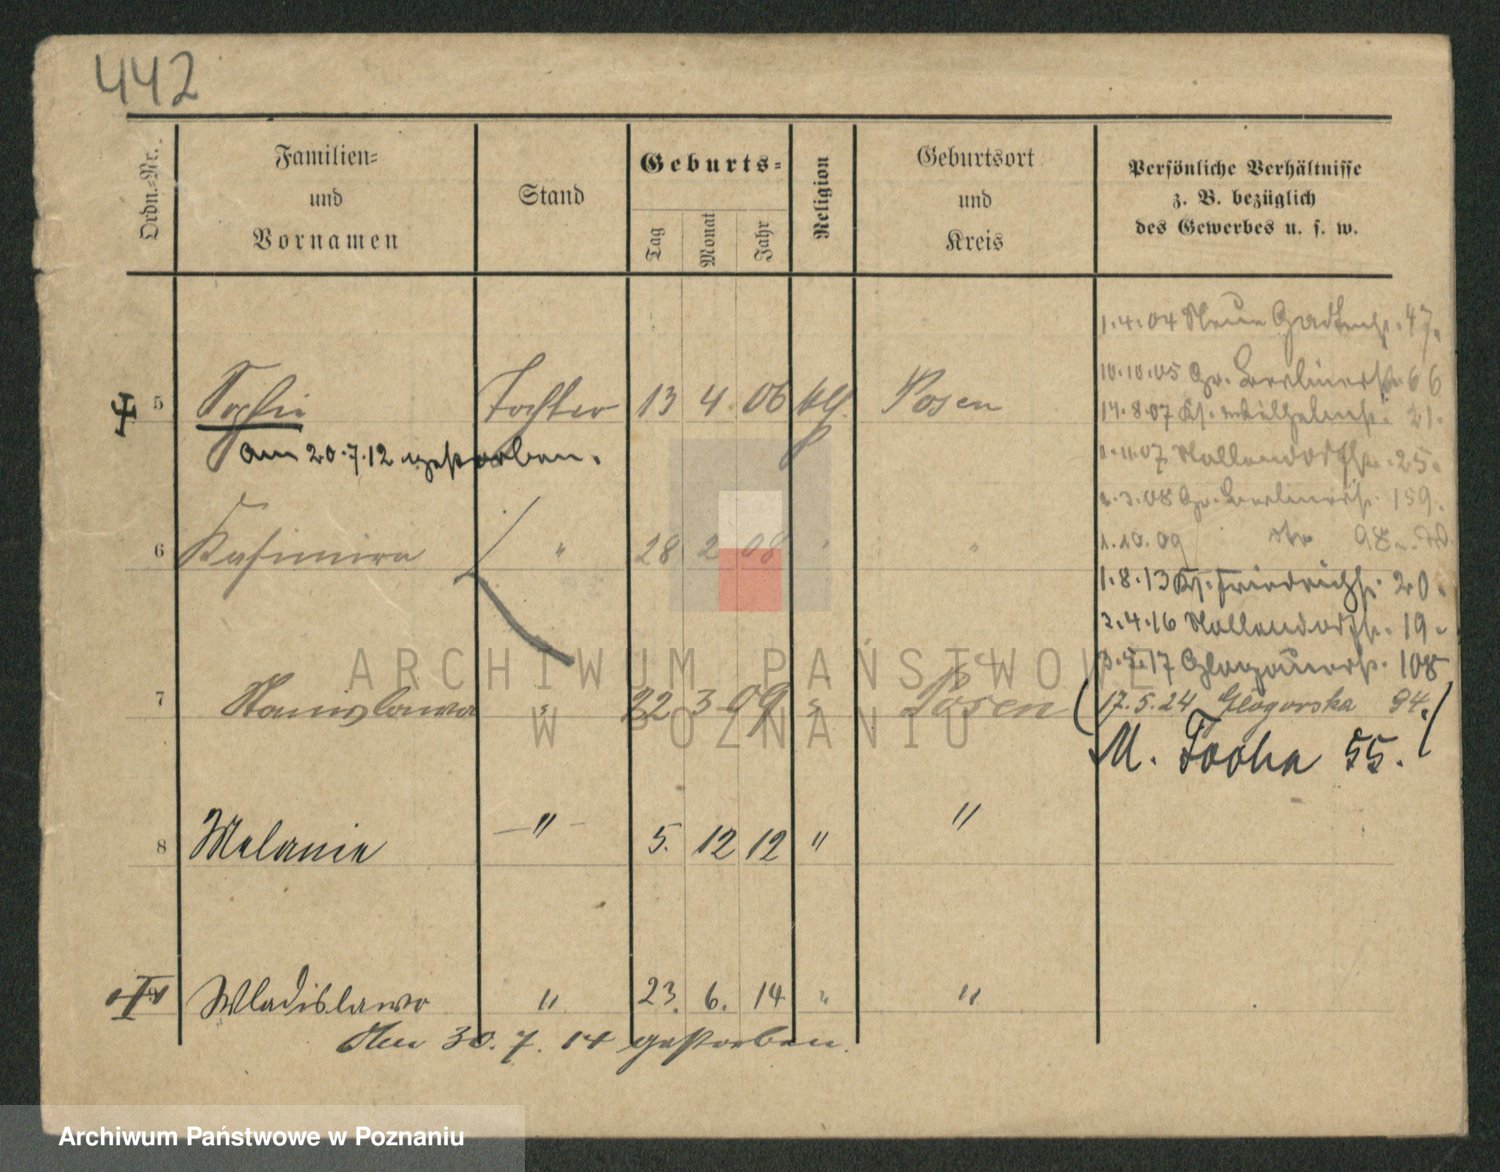 442
Ordn.-Nr.
Familien-
und
Vornamen
Stand
Geburts-
Tag
Monat
Jahr
Religion
Geburtsort
und
Kreis
Persönliche Verhältnisse
z. B. bezüglich
des Gewerbes u. s. w.
1.4.04 Neue Gartenstr. 47.
10.10.05 Gr. Berlinerstr. 66
5 Sophie Tochter 13 4 06 kth. Posen
14.8.07 Kl. Wilhelmstr. 21.
am 20.7.12 gestorben.
07 Nollendorfstr. 25.
3.08 Gr. Berlinerstr. 159.
6 Kasimira " 28 2 08 " "
1.10.09 98
1.8.13 Kl. Friedrichstr. 20.
2.4.16 Nollendorfstr. 19.
17 Glogauerstr. 108
7 Stanislawa " 22 3 09 " Posen
(17.5.24 Glogorska 94.)
M. Focha 55.
8 Melanie — " — 5. 12 12 " "
Wladislawa " 23. 6. 14 " "
Am 30.7.14 gestorben.
ARCHIWUM PAŃSTWOWE
W POZNANIU
Archiwum Państwowe w Poznaniu